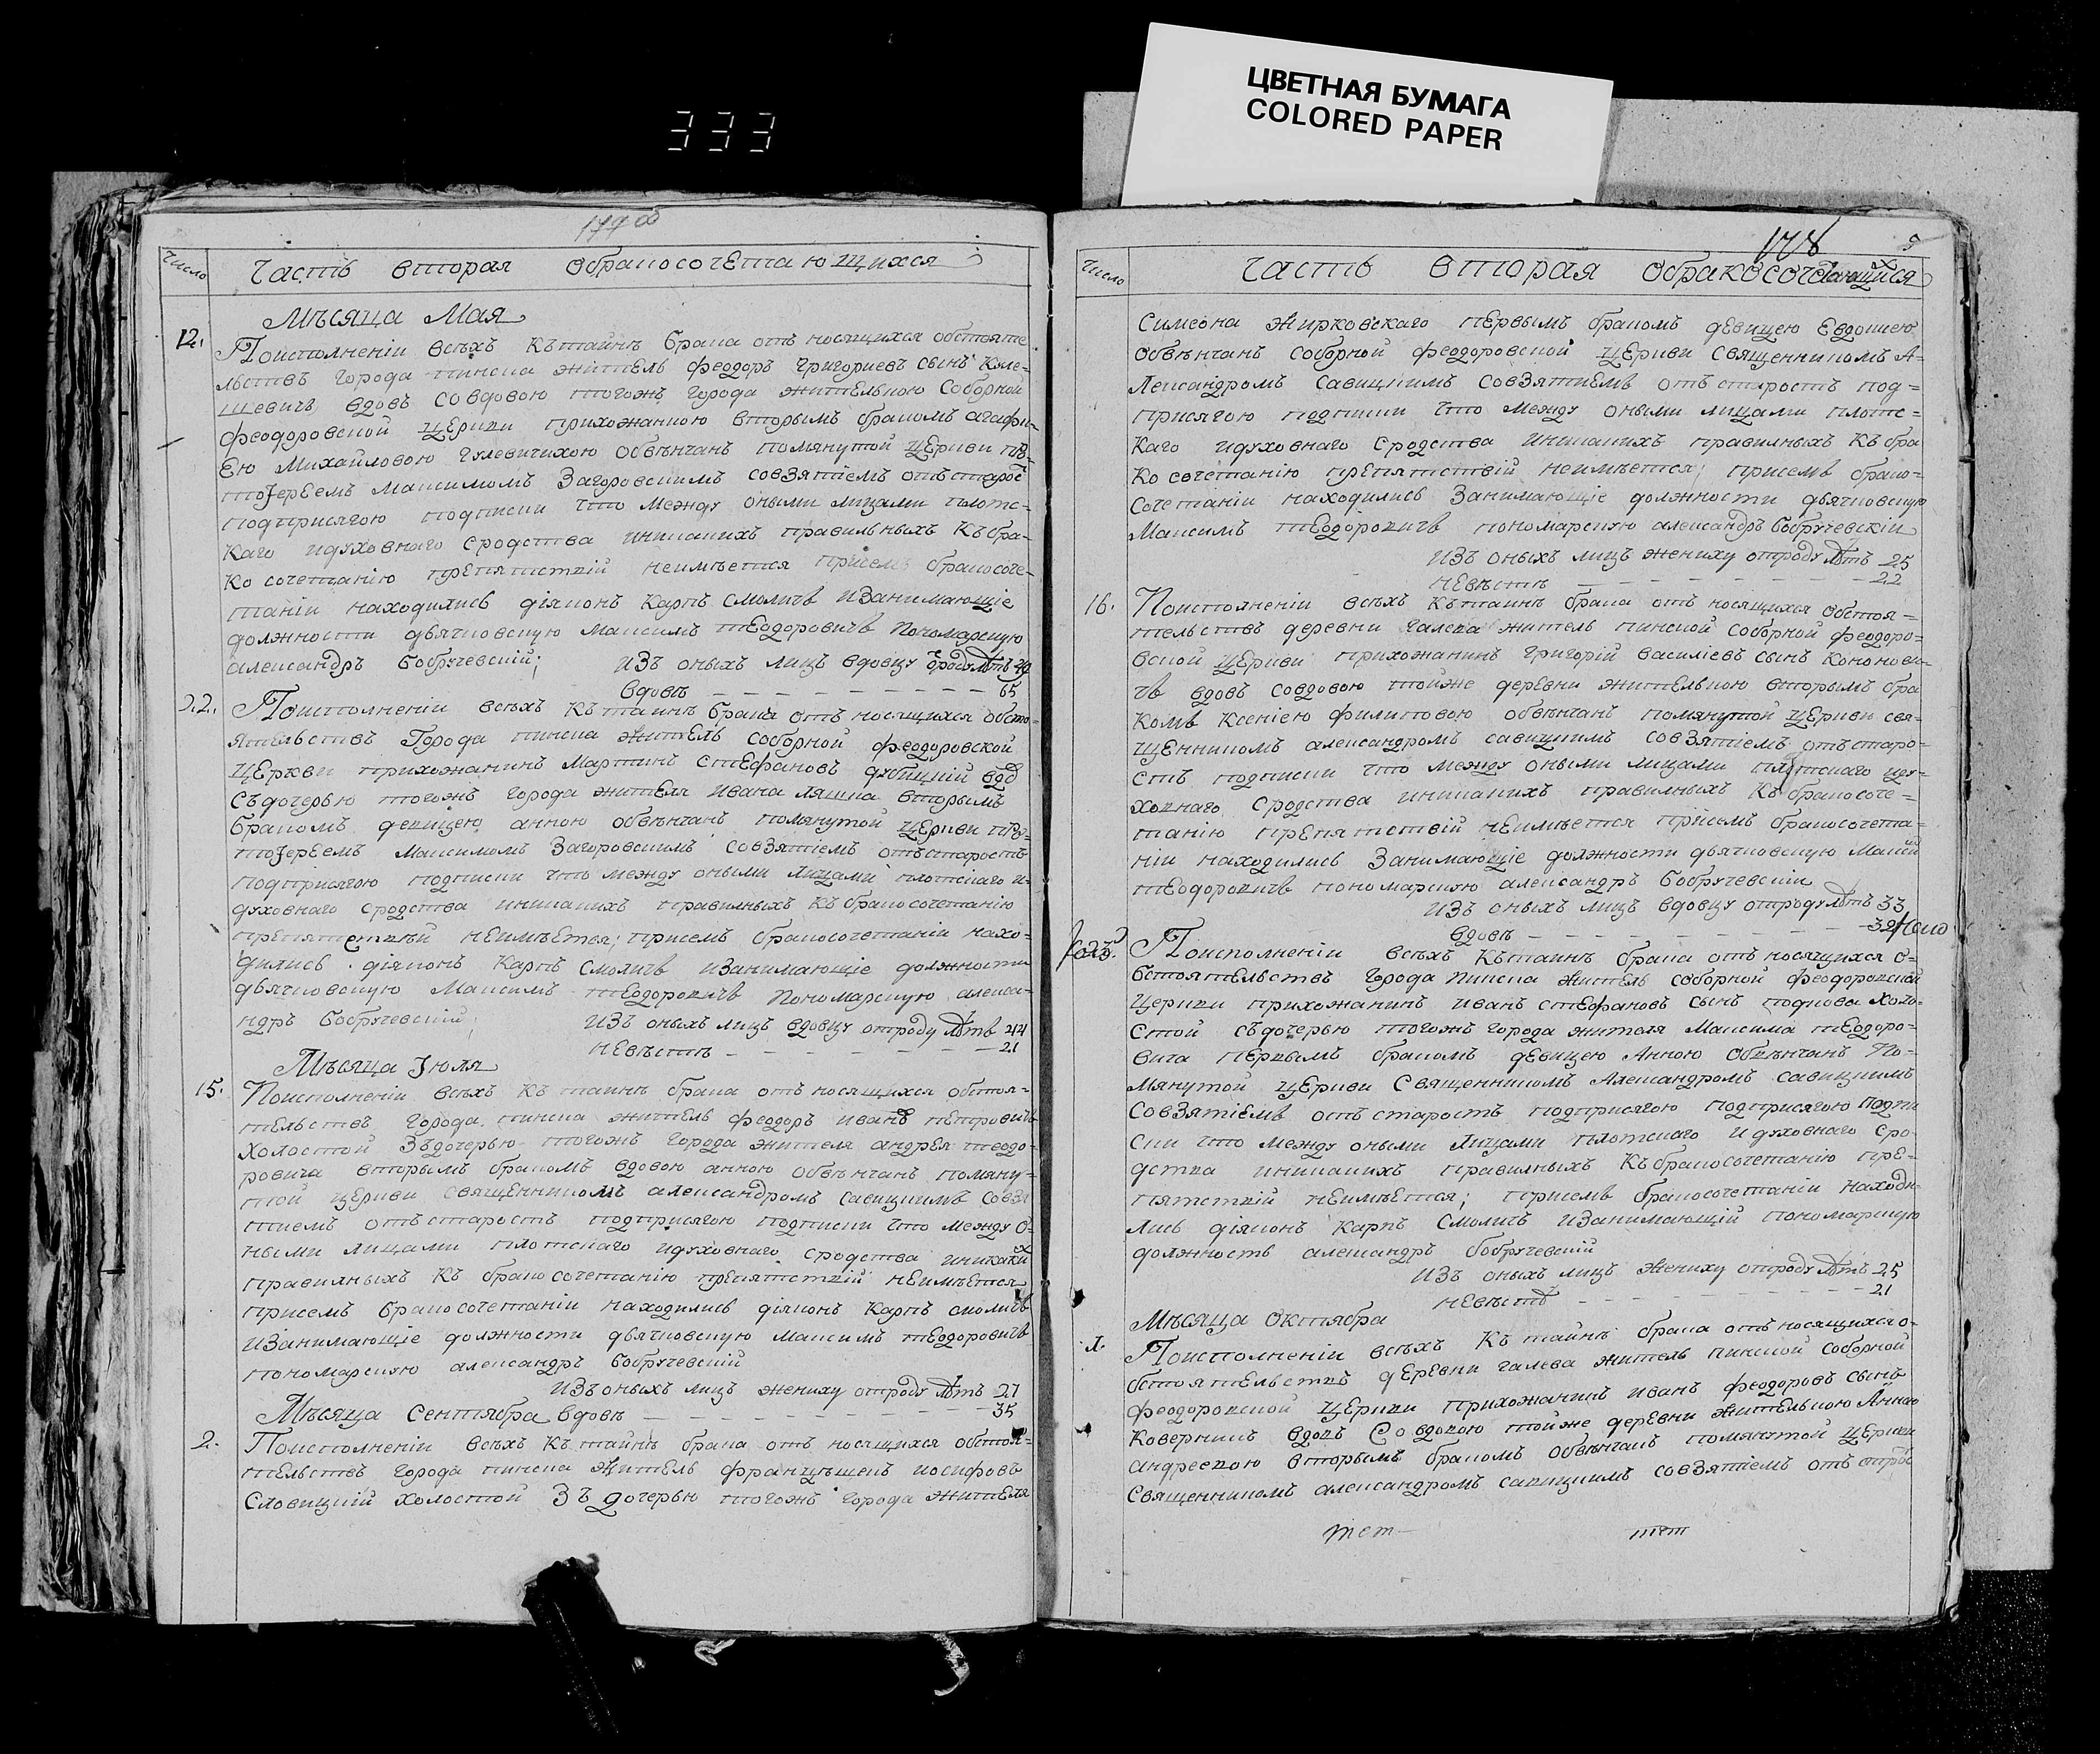 ЦВЕТНАЯ БУМАГА
COLORED PAPER
333
Число
Часть вторая обракосочетающихся
Мѣсяца Мая
12.
Поисполненіи всѣхъ Кътайнѣ брака отъ носящихся обстояте
льствъ города пинска житель феодоръ Григоріевъ сынъ
шевичъ вдовъ со вдовою тогожъ города жительною Соборной
феодоровской церкви прихожанною вторымъ бракомъ агафи-
ею Михайловою Гулевичихою обвѣнчанъ помянутой церкви про-
тоіереемъ Максимомъ Загоровскимъ совзятіемъ отъ старос
подприсягою подписки что между оными лицами плотс-
каго идуховнаго сродства иникакихъ правильныхъ Къ бра-
ко сочетанію препятствій неимѣется присемъ бракосоче-
таніи находились діяконъ Карпъ Смоличъ изанимающіе
должности дьячковскую Максимъ теодоровичъ Пономарскую
александръ бобручевскій; изъ оныхъ лицъ вдовцу
вдовѣ — 65
22.
Поисполненіи всѣхъ Къ тайнѣ брака отъ носящихся обсто-
ятельствъ Города пинска житель соборной феодоровской
Церкви прихожанинъ Мартинъ Стефановъ дубицкій вдо
Съдочерью тогожъ города жителя ивана ляшка вторымъ
бракомъ девицею анною обвѣнчанъ помянутой церкви про-
тоіереемъ Максимомъ Загоровскимъ совзятіемъ отъстаростъ
подприсягою подписки что между оными лицами плотскаго и-
духовнаго сродства иникакихъ правилныхъ Къ бракосочетанію
препятствій неимѣется; присемъ бракосочетаніи нахо-
дились діяконъ Карпъ Смоличъ изанимающіе должности
дьячковскую Максимъ теодоровичъ Пономарскую алекса-
ндръ бобручевскій; изъ оныхъ лицъ вдовцу отроду лѣтъ 44
невѣстѣ — 21
Мѣсяца Іюля
15.
Поисполненіи всѣхъ Къ тайнѣ брака отъ носящихся обстоя-
тельствъ города пинска житель феодоръ петровичъ
холостой Зъдочерью тогожъ города жителя андрея теодо-
ровича вторымъ бракомъ вдовою анною обвѣнчанъ помяну-
той церкви священникомъ александромъ савицкимъ совзя
тиемъ отъ старостъ подприсягою подписки что между о-
ными лицами плотскаго идуховнаго сродства иникаких
правилныхъ Къ бракосочетанію препятствій неимѣется
присемъ бракосочетаніи находились діяконъ Карпъ смоличъ
изанимающіе должности дьячковскую максимъ теодоровичъ
пономарскую александръ бобручевскій
изъ оныхъ лицъ жениху отроду лѣтъ 27
Мѣсяца Сентября вдовѣ — 35
2.
Поисполненіи всѣхъ Къ тайнѣ брака отъ носящихся обстоя-
тельствъ города пинска житель францѣшекъ иосифовъ
Словицкій холостой Зъ дочерью тогожъ города жителя
178
Число
Часть вторая обракосочетающихся
Симеона Жирковскаго первымъ бракомъ девицею Евдокиею
обвѣнчанъ соборной феодоровской церкви Священникомъ А-
лександромъ савицкимъ совзятиемъ отъ старостъ под-
присягою подписки что между оными лицами плотс-
каго идуховнаго Сродства иникакихъ правилныхъ Къ бра
косочетанію препятствій неимѣется; присемъ брако-
сочетаніи находились Занимающіе должности дьячковскую
Максимъ теодоровичъ пономарскую александръ бобручевскій
изъ оныхъ лицъ жениху отроду лѣтъ 25
невѣстѣ — 22
16.
Поисполненіи всѣхъ Кътаинѣ брака отъ носящихся обстоя-
тельствъ деревни галева житель пинской соборной феодоро-
вской церкви прихожанинъ григорій василіевъ сынъ Кононови-
чъ вдовъ совдовою тойже деревни жительною вторымъ бра
комъ Ксеніею филиповою обвѣнчанъ помянутой церкви свя-
щенникомъ александромъ савицкимъ совзятіемъ отъстаро-
стъ подписки что между оными лицами плотскаго иду-
ховнаго сродства иникакихъ правилныхъ Къ бракосоче-
танію препятствій неимѣется присемъ бракосочета-
ніи находились Занимающіе должности дьячковскую
теодоровичъ пономарскую александръ бобручевскій
изъ оныхъ лицъ вдовцу отроду лѣтъ 33
вдовѣ —
Поисполненіи всѣхъ Кътаинѣ брака отъ носящихся о-
бстоятельствъ Города Пинска житель соборной феодоровской
Церкви прихожанинъ иванъ стефановъ сынъ холо-
стой съдочерью тогожъ города жителя Максима теодоро-
вича первымъ бракомъ девицею Анною обвѣнчанъ По-
мянутой церкви Священникомъ Александромъ савицкимъ
Совзятіемъ отъ старостъ подприсягою подприсягою подпи
ски что между оными лицами плотскаго идуховнаго сро-
дства иникакихъ правилныхъ Къ бракосочетанію пре-
пятствій неимѣется; присемъ бракосочетаніи находи-
лись діяконъ Карпъ Смоличъ изанимающій пономарскую
должность александръ бобручевскій
изъ оныхъ лицъ жениху отроду лѣтъ 25
невѣстѣ — 21
Мѣсяца Октября
Поисполненіи всѣхъ Къ тайнѣ брака отъ носящихся о-
бстоятельствъ деревни галева житель пинской соборной
феодоровской церкви прихожанинъ иванъ феодоровъ сынъ
Ковернинъ вдовъ Со вдовою тойже деревни жительною Анною
андреевою вторымъ бракомъ обвѣнчанъ помянутой церкви
Священникомъ александромъ савицкимъ совзятіемъ отъ